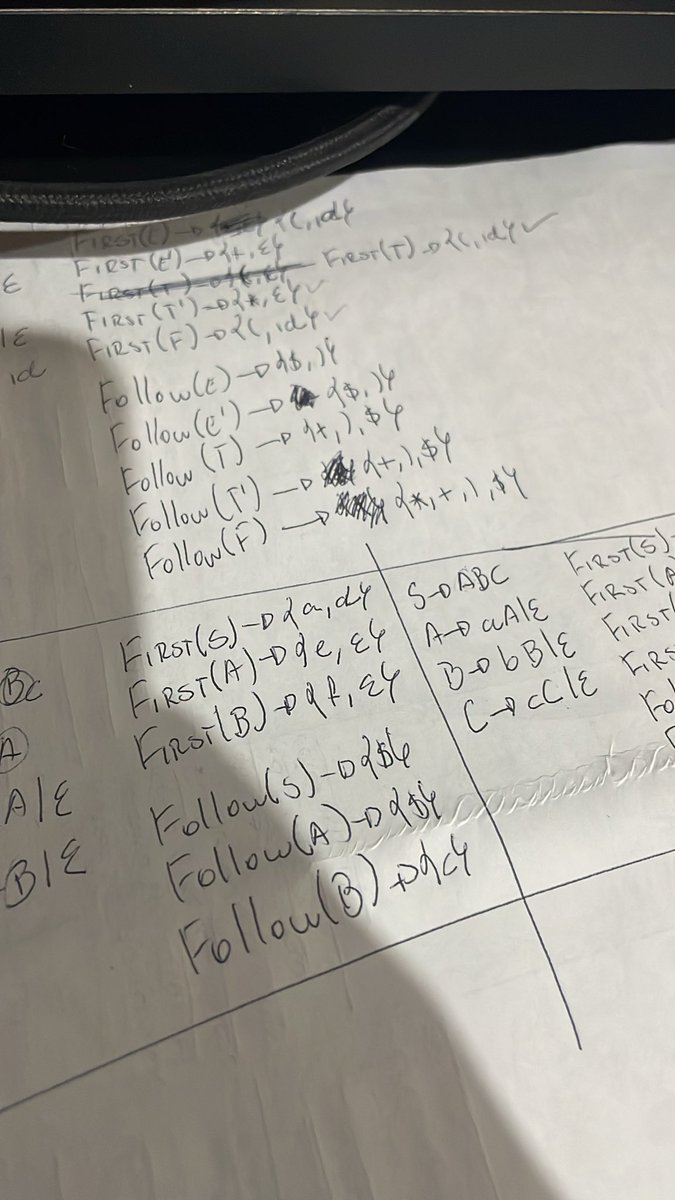 FIRST(E)→ {(, id}
FIRST(E')→{+, ε}
ε
FIRST(T)→{(, id} ✓
FIRST(T')→{*, ε} ✓
|ε
FIRST(F)→{(, id} ✓
id
Follow(E)→{$, )}
Follow(E')→ {$, )}
Follow(T)→{+, ), $}
Follow(T')→ {+, ), $}
Follow(F)→ {*, +, ), $}
FIRST(S)→{a, d}
Bc
FIRST(A)→{e, ε}
A
FIRST(B)→{f, ε}
A|ε
Follow(S)→{$}
B|ε
Follow(A)→{$}
Follow(B)→{c}
S→ABC
FIRST(S)→
A→aA|ε
FIRST(A
B→bB|ε
FIRST(
C→cC|ε
FIRS
Fol
F